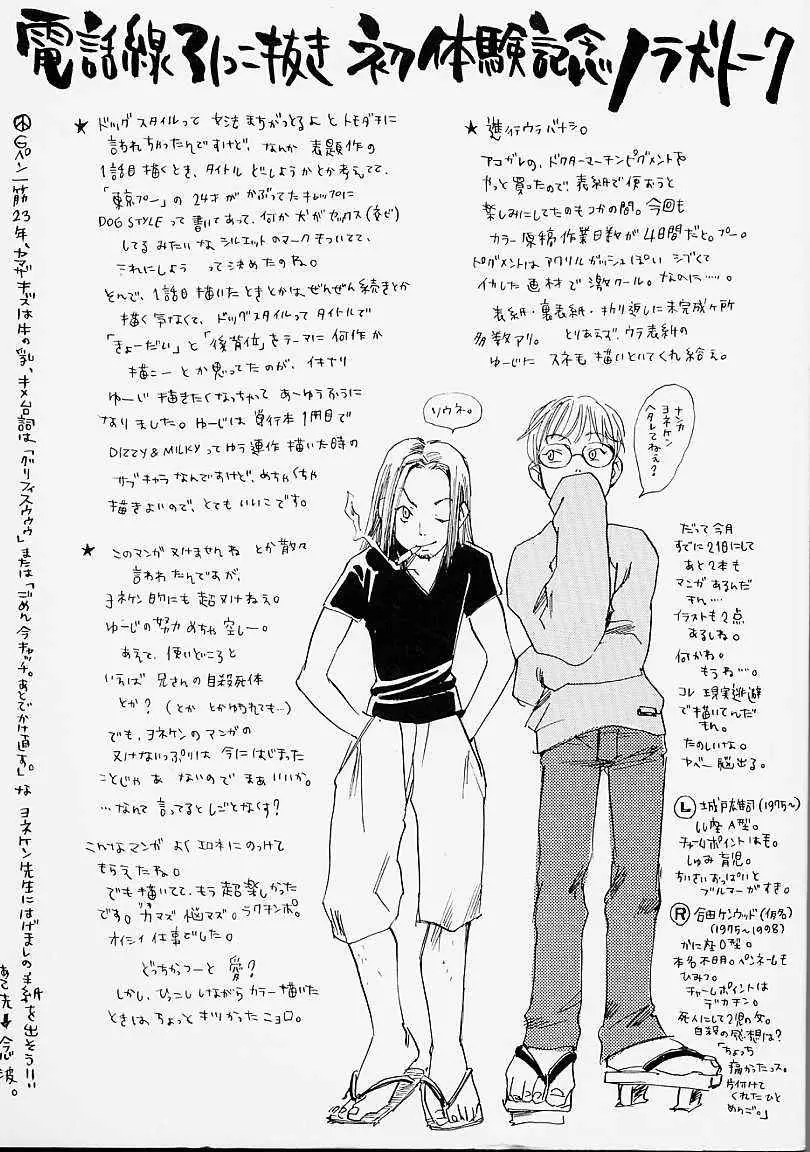 電話線引っこ抜き 初体験記念ノラ犬トーク
★ 進行ウラバナシ。
アコガレの、ドクターマーチンピグメントを
やっと買ったので、表紙で使おうと
楽しみにしてたのもつかの間。今回も
カラー原稿作業日数が4日間だと。プー。
ピグメントはアクリルガッシュぽい シブくて
イカした画材で激クール。なのに……。
表紙・裏表紙・折り返しに未完成ヶ所
多数アリ。 とりあえず、ウラ表紙の
ゆーじに スネ毛描いといてくれ給え。
★ ドッグスタイルって 文法まちがっとるよ とトモダチに
言われちゃったんですけど、なんか 表題作の
1話目描くとき、タイトル どしようかとか考えてて、
「東京プー」の 24才が かぶってたキャップに
DOG STYLE って書いてあって、何か 犬がセックス(交ビ)
してる みたいな、シルエットのマークもついてて、
これにしよう って決めたのね。
とんで、1話目描いたときとかは、ぜんぜん続きとか
描く気なくて、ドッグスタイルって タイトルで
「きょーだい」と「後背位」をテーマに何作か
描こー とか思ってたのが、イキナリ
ゆーじ 描きたくなっちゃって あーゆうふうに
なりました。ゆーじは 単行本1冊目で
DIZZY & MILKY ってゆう連作 描いた時の
サブキャラなんですけど、めちゃくちゃ
描きよいので、とてもいいこです。
★ このマンガ ヌけませんね とか散々
言われたんですが、
ヨネケン的にも超ヌけねえ。
ゆーじの努力めちゃ空しー。
あえて、使いどころと
いちば 兄さんの自殺死体
とか? (とか とかゆわれても…)
でも、ヨネケンのマンガの
ヌけないっぷりは 今にはじまった
ことじゃあ ないので まあいいか。
…なんて 言ってるとしごとなくす?
こんなマンガ よく エロネにのっけて
もらえたね。
でも描いてて、もう超楽しかった
です。ガマズ悩マズ。ラクチンポ。
オイシイ仕事でした。
どっちかつーと 愛?
しかし、ひっこし しながら カラー描いた
ときは、ちょっと キツかったニョロ。
Gペン一筋23年、ヤマザキズは牛の乳、キメ台詞は、「グリフィスウゥゥ」または「ごめん今キャッチ。あとでかけ直す。」な ヨネケン先生にはげましの手紙を出そう!!
あて先↓今心波。
ソウネ。
ナンカ
ヨネケン
ヘタレてねえ?
だって 今月
すでに21日にして
あと2本も
マンガあるんだ
もん…
イラストも2点
あるしね。
何かね。
もうね…。
コレ 現実逃避
で描いてんだ
もん。
たのしいな。
ヤベー 脳出る。
Ⓛ 土城戸雄司(1975〜)
しし座 A型。
チャームポイントは毛。
しゅみ 育児。
ちいさいおっぱいと
ブルマーがすき。
Ⓡ 合田ケンウッド(仮名)
(1975〜1998)
かに座O型。
本名不明。ペンネームも
ひみつ。
チャームポイントは
デカチン。
死人にして2児の父。
自殺の感想は?
「ちょっち
痛かったっス。
片付けて
くれたひと
めんご。」